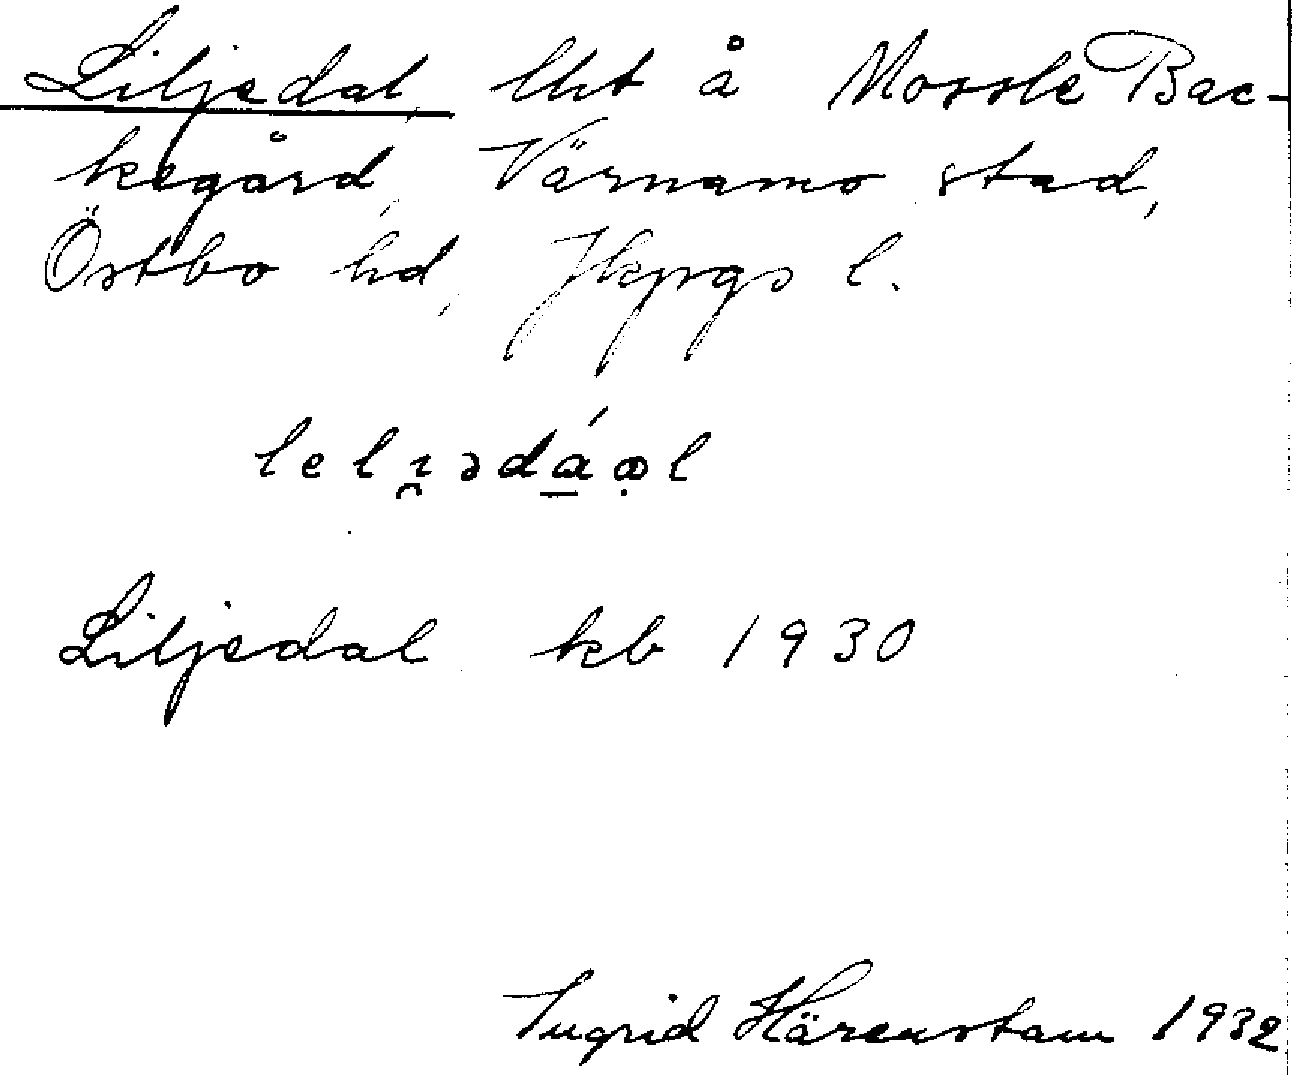 Liljedal, lht å Mossle Bac-
kegård, Värnamo stad,
Östbo hd, Jkpgs l.
lelı̯ədá̱ꝏ̣l
Liljedal kb 1930
Ingrid Härenstam 1932